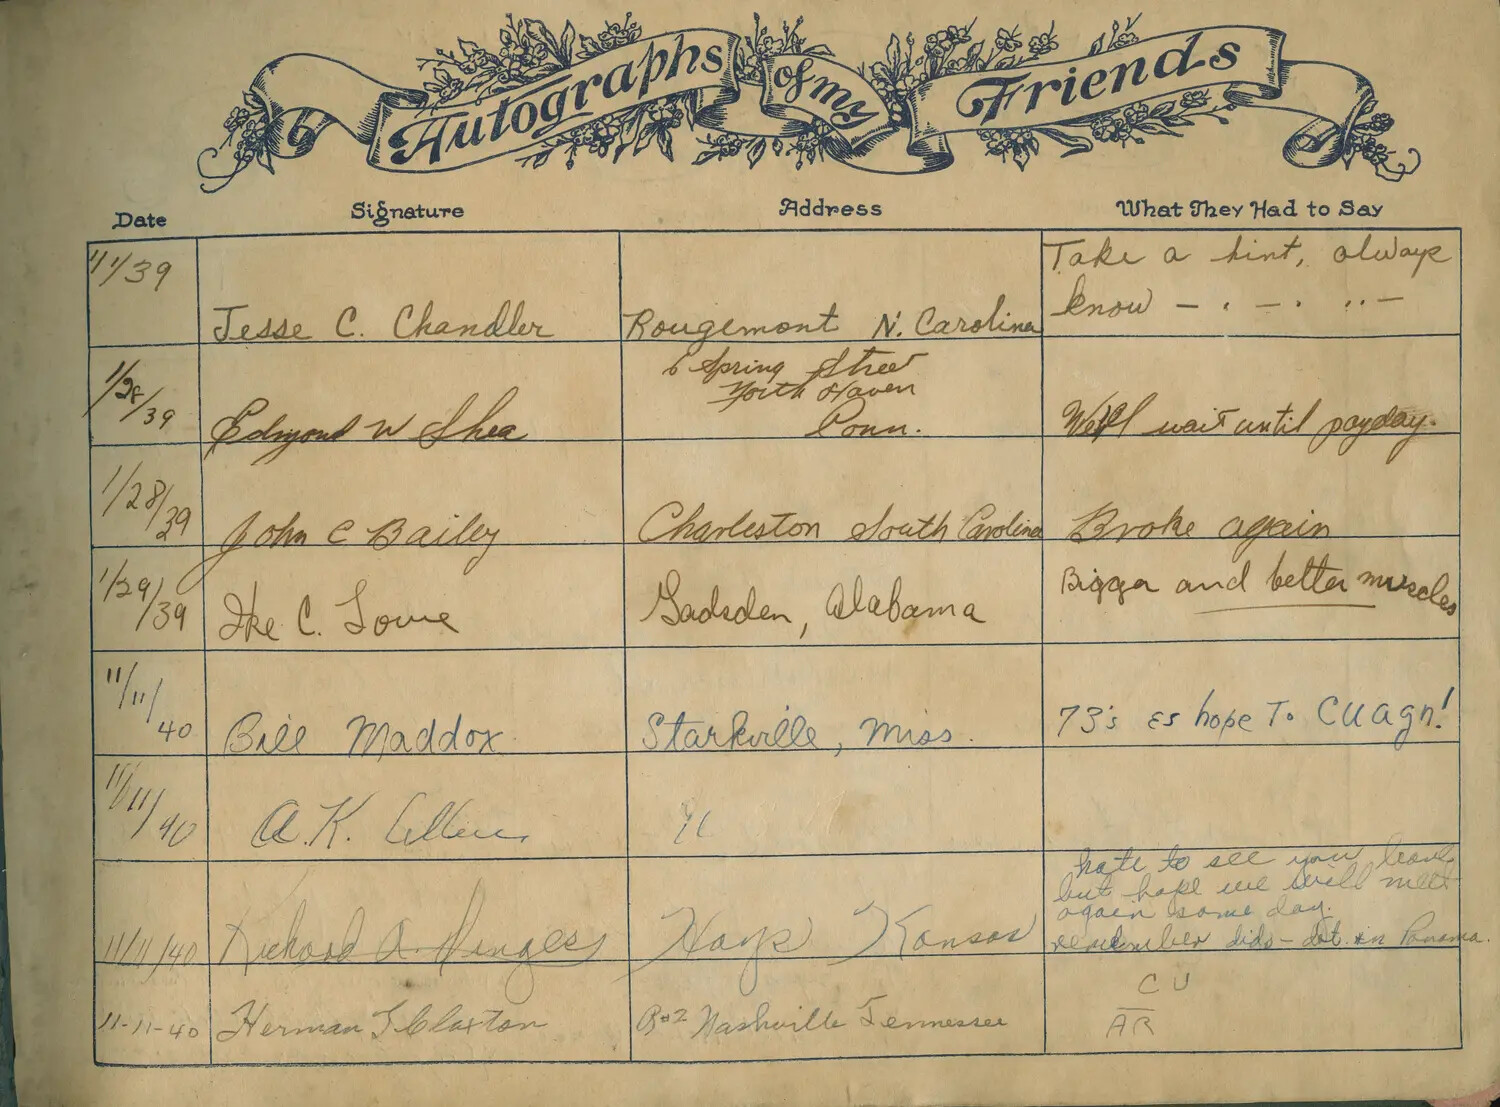 Autographs of my Friends
Date Signature Address What They Had to Say
1/1/39 Jesse C. Chandler Rougemont N. Carolina Take a hint, always
know – . – . . . –
1/28/39 Edmond W Shea 6 Spring Street
North Haven
Conn. We'll wait until payday.
1/28/39 John C Bailey Charleston South Carolina Broke again
1/29/39 Ike C. Lowe Gadsden, Alabama Bigger and better muscles
11/11/40 Bill Maddox Starkville, Miss. 73's es hope To CUAGN!
11/11/40 A. K.
11/11/40 Richard A. Dinges Hays Kansas hate to see you leave
but hope we will meet
again some day.
remember dido - dot in Panama.
11-11-40 Herman T. Claxton R#2 Nashville Tennessee CU
AR